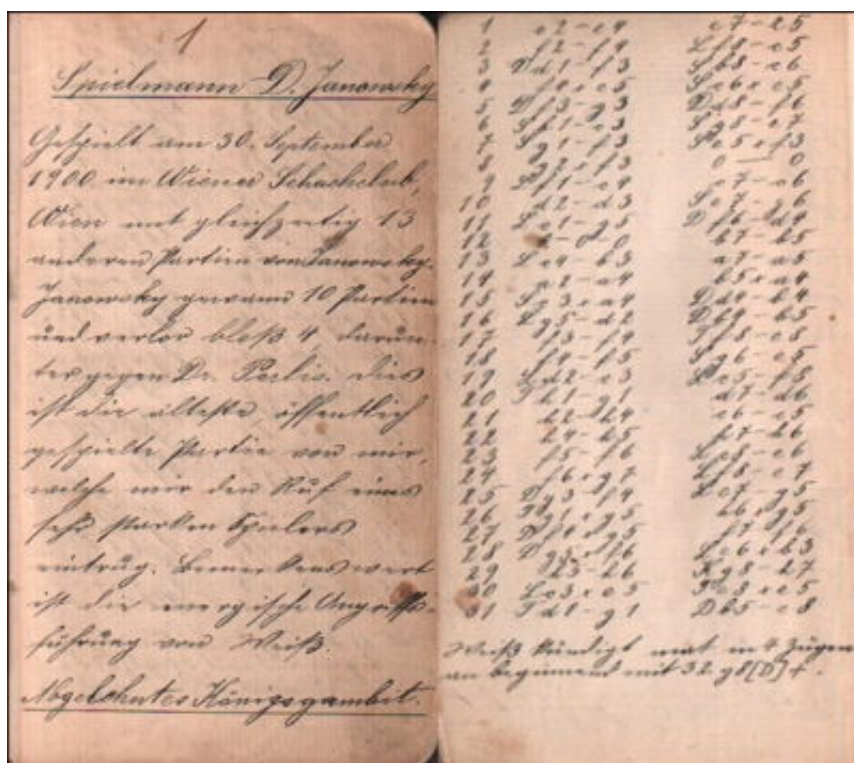 1
Spielmann – D. Janowsky
Gespielt am 30. September
1900 im Wiener Schachclub,
Wien mit gleichzeitig 13
anderen Partien von Janowsky.
Janowsky gewann 10 Partien
und verlor bloß 4, darun-
ter gegen Dr. Perlis. Dies
ist die älteste, öffentlich
gespielte Partie von mir,
welche mir den Ruf eines
sehr starken Spielers
eintrug. Bemerkenswert
ist die energische Angriffs-
führung von Weiß.
Abgelehntes Königsgambit.
1 e2–e4 e7–e5
2 f2–f4 Lf8–c5
3 Dd1–f3 Sb8–c6
4 f4xe5 Sc6xe5
5 Df3–g3 Dd8–f6
6 Sb1–c3 Sg8–e7
7 Sg1–f3 Se5xf3
8 g2xf3 0–0
9 Lf1–c4 c7–c6
10 d2–d3 Se7–g6
11 Lc1–g5 Df6–d4
12 0–0–0 b7–b5
13 Lc4–b3 a7–a5
14 a2–a4 b5xa4
15 Sc3xa4 Dd4–b4
16 Lg5–d2 Db4–b5
17 f3–f4 Tf8–e8
18 f4–f5 Sg6–e5
19 Ld2–c3 Lc5–f8
20 Th1–g1 d7–d6
21 h2–h4 c6–c5
22 h4–h5 h7–h6
23 f5–f6 Lc8–e6
24 f6xg7 Lf8–e7
25 Dg3–f4 Le7–g5
26 Tg1xg5 h6xg5
27 Df4xg5 f7–f6
28 Dg5xf6 Le6xb3
29 h5–h6 Kg8–h7
30 Lc3xe5 Te8xe5
31 Td1–g1 Db5–e8
Weiß kündigt mat in 4 Zügen
an beginnend mit 32. g8[D]+.